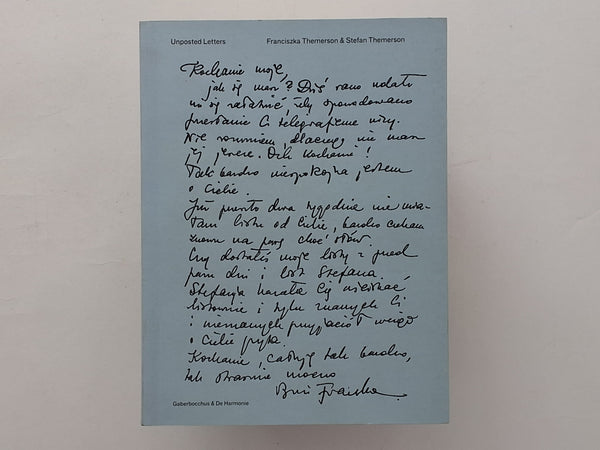 Unposted Letters
Franciszka Themerson & Stefan Themerson
Kochanie moje,
jak się masz? Dziś rano udało
mi się załatwić, żeby spowodowano
przesłanie Ci telegraficznie wizy.
Nie rozumiem, dlaczego nie masz
jej jeszcze. Och kochanie!
Tak bardzo niespokojna jestem
o Ciebie.
Już przeszło dwa tygodnie nie mia-
łam listu od Ciebie, bardzo czekam
znowu na parę choć słów.
Czy dostałeś moje listy z przed
paru dni i list Stefana.
Stefanja kazała Cię uściskać
listownie i tylu znanych Ci
i nieznanych przyjaciół wciąż
o Ciebie pyta.
Kochanie, całuję tak bardzo,
tak strasznie mocno
Franka.
Gaberbocchus & De Harmonie